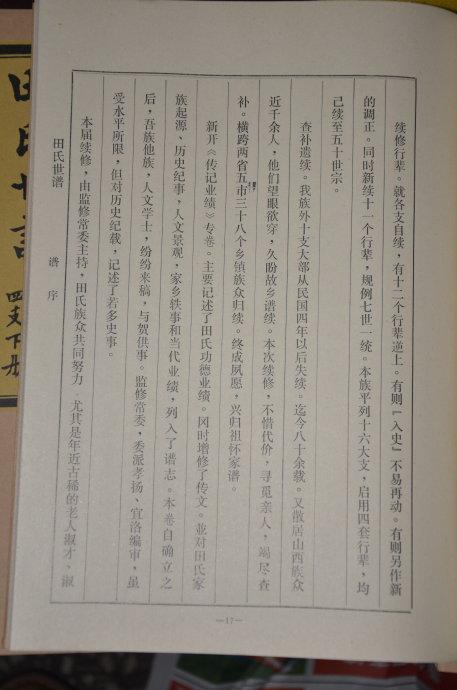 续修行辈。就各支自续，有十二个行辈逆上。有则『入史』不易再动。有则另作新
的调正。同时新续十一个行辈，规例七世一统。本族平列十六大支，启用四套行辈，均
已续至五十世宗。
查补遗续。我族外十支大部从民国四年以后失续。迄今八十余载。又散居山西族众
近千余人，他们望眼欲穿，久盼故乡谱续。本次续修，不惜代价，寻觅亲人，竭尽查
补。横跨两省五市三十八个乡镇族众归续。终成夙愿，兴归祖怀家谱。
新开《传记业绩》专卷。主要记述了田氏功德业绩。同时增修了传文。並对田氏家
族起源、历史纪事，人文景观，家乡轶事和当代业绩，列入了谱志。本卷自确立之
后，吾族他族，人文学士，纷纷来稿，与贺供事。监修常委，委派孝扬、宜洛编审，虽
受水平所限，但对历史纪载，记述了若多史事。
本届续修，由监修常委主持，田氏族众共同努力，尤其是年近古稀的老人淑才、淑
田氏世谱
谱序
—17—
田氏世谱
四支下册